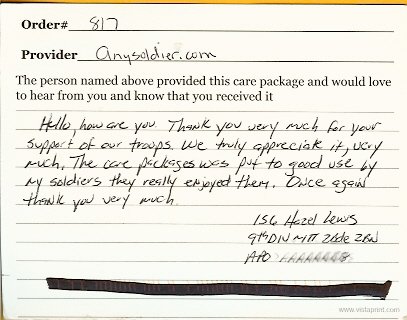 Order# 817
Provider anysoldier.com
The person named above provided this care package and would love
to hear from you and know that you received it
Hello, how are you. Thank you very much for your
support of our troops. We truly appreciate it, very
much. The care packages was put to good use by
my soldiers they really enjoyed them. Once again
thank you very much.
1SG Hazel Lewis
9th DIV MTT 2Bde 2BN
APO
www.vistaprint.com